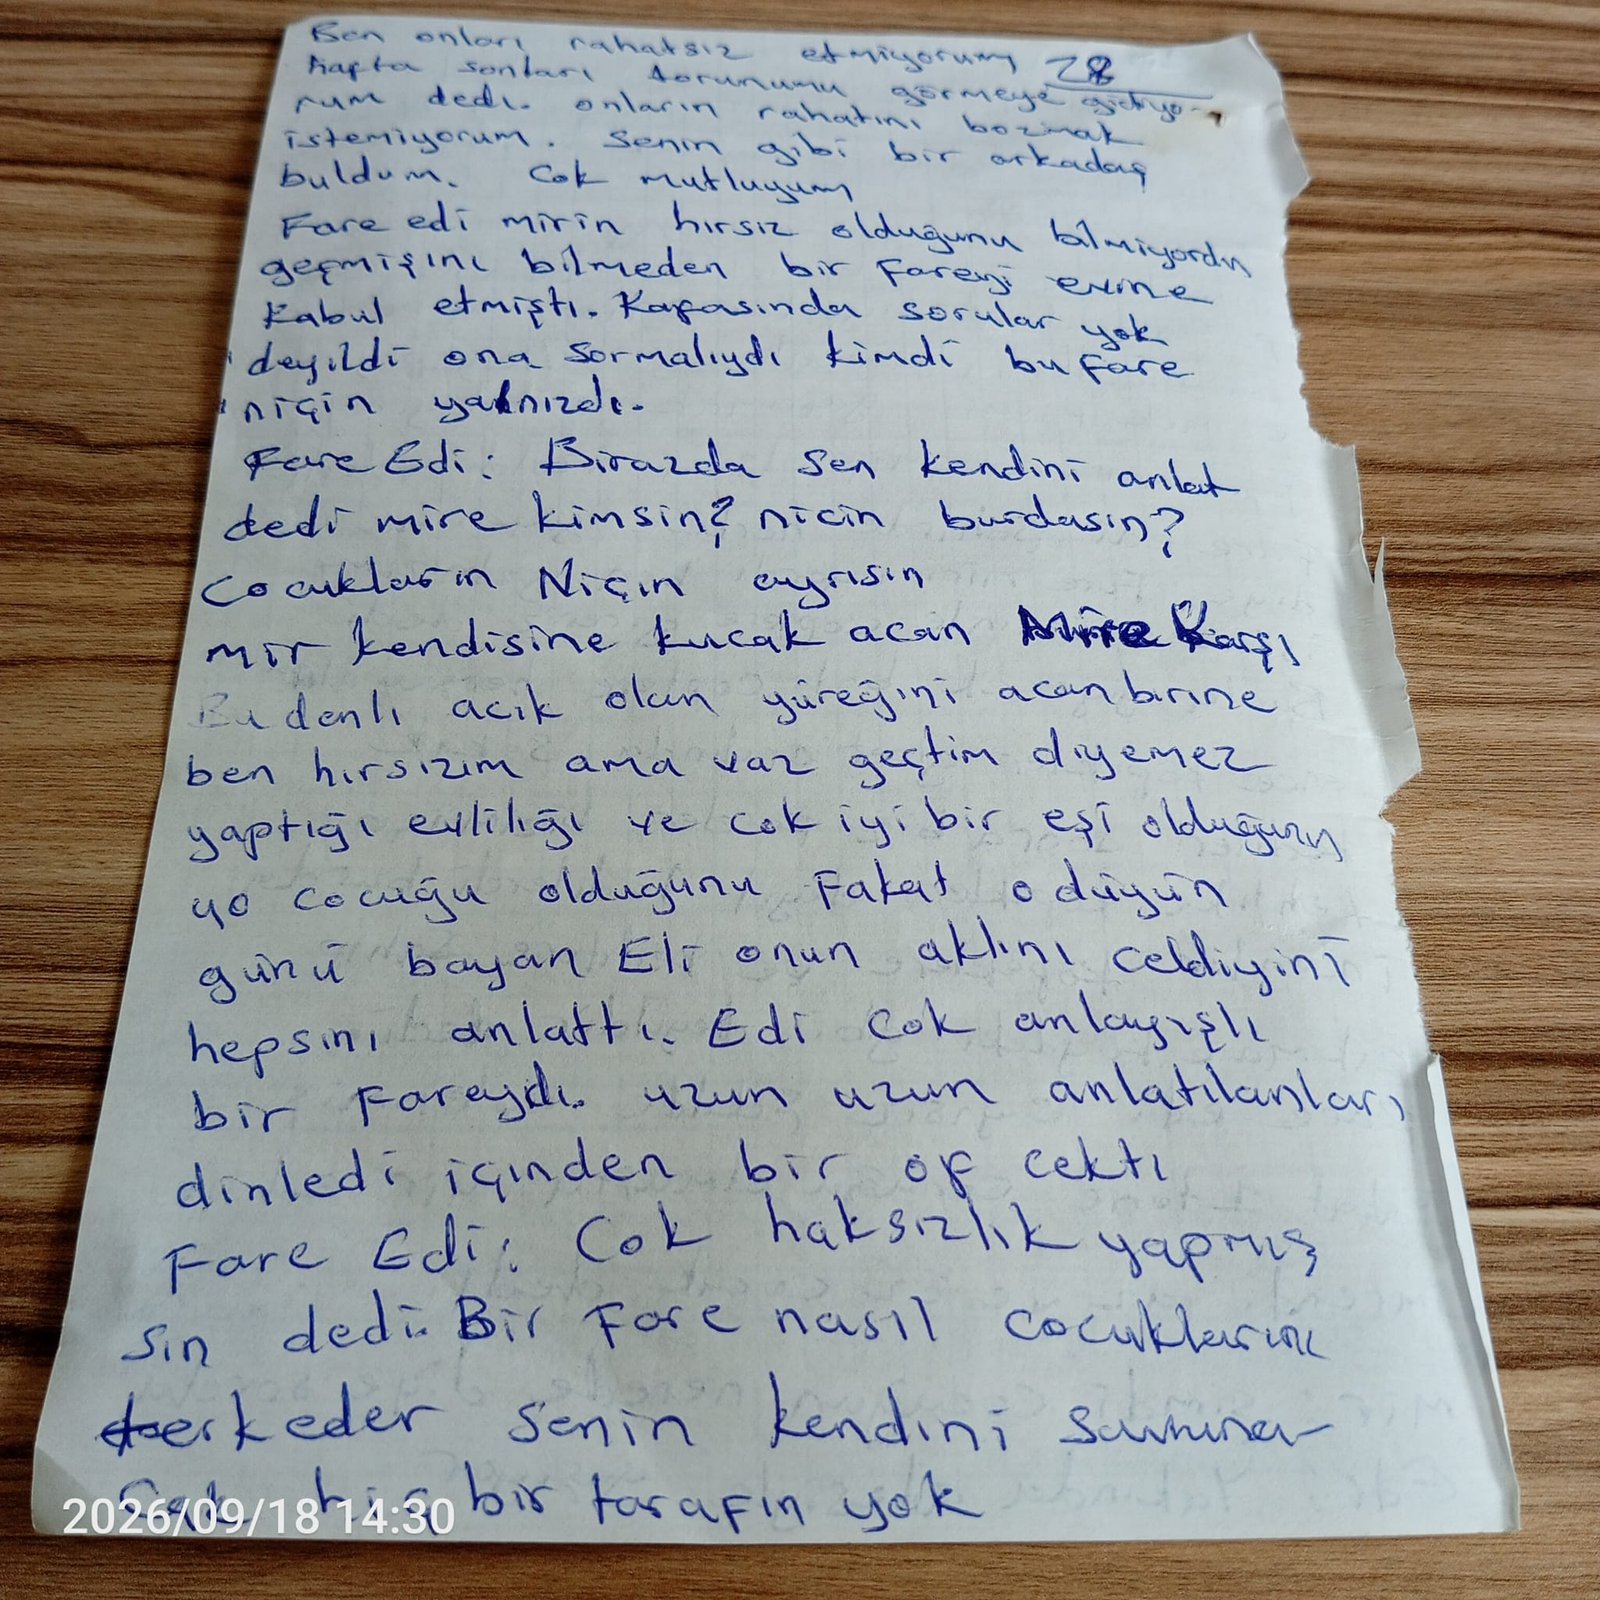 Ben onları rahatsız etmiyorum 28
hafta sonları torunumu görmeye gidiyo-
rum dedi. onların rahatını bozmak
istemiyorum. Senin gibi bir arkadaş
buldum. Cok mutluyum
Fare edi mirin hırsız olduğunu bilmiyordu
geçmişini bilmeden bir fareyi evine
kabul etmişti. Kafasında sorular yok
deyildi ona sormalıydı kimdi bu fare
niçin yalnızdı.
Fare Edi: Birazda sen kendini anlat
dedi mire kimsin? nicin burdasın?
Cocukların Niçin ayrısın
mir kendisine kucak acan Mire Karşı
Bu denli acık olan yüreğini acan birine
ben hırsızım ama vaz geçtim diyemez
yaptığı evliliği ve cok iyi bir eşi olduğunu
40 cocuğu olduğunu Fakat o düyün
günü bayan Eli onun aklını celdiyini
hepsini anlattı. Edi cok anlayışlı
bir Fareydi. uzun uzun anlatılanları
dinledi içinden bir of cekti
Fare Edi: Cok haksızlık yapmış
sin dedi. Bir Fare nasıl cocuklarını
terkeder senin kendini savuna
cak hiç bir tarafın yok
2026/09/18 14:30